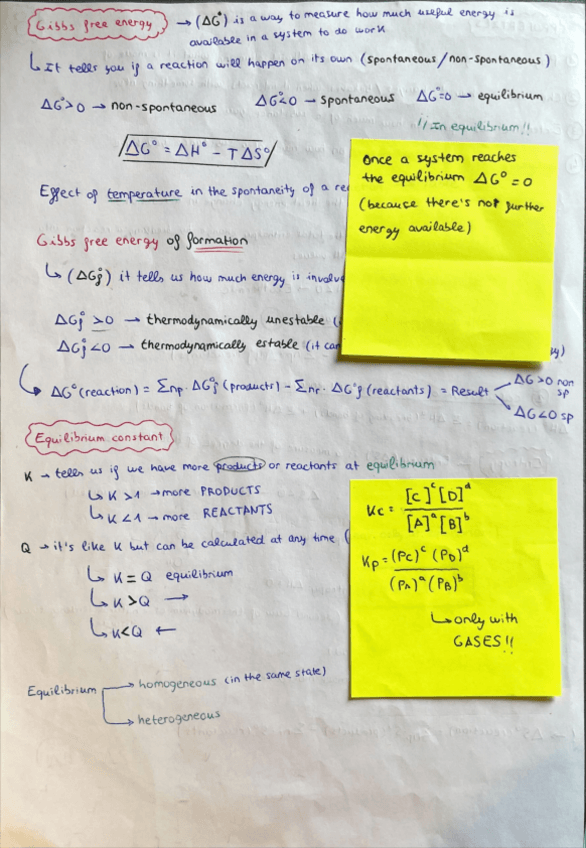 Gibbs free energy → (ΔG°) is a way to measure how much useful energy is
available in a system to do work
↳ It tells you if a reaction will happen on its own (spontaneous/non-spontaneous)
ΔG°>0 → non-spontaneous ΔG°<0 → spontaneous ΔG°=0 → equilibrium
!! In equilibrium!!
ΔG° = ΔH° - TΔS°
Once a system reaches
the equilibrium ΔG° = 0
(because there's not further
energy available)
Effect of temperature in the spontaneity of a
Gibbs free energy of formation
↳ (ΔGf°) it tells us how much energy is
ΔGf° >0 → thermodynamically unestable (
ΔGf° <0 → thermodynamically estable (it
↳ ΔG°(reaction) = Σnp · ΔGf°(products) - Σnr · ΔG°f(reactants) = Result
ΔG>0 non
sp
ΔG<0 sp
Equilibrium constant
K → tells us if we have more products or reactants at equilibrium
↳ K >1 → more PRODUCTS
↳ K <1 → more REACTANTS
Q → it's like K but can be calculated at any time (
↳ K = Q equilibrium
↳ K>Q →
↳ K<Q ←
Kc = [C]^c [D]^d / [A]^a [B]^b
Kp = (Pc)^c (PD)^d / (PA)^a (PB)^b
↳ only with
GASES!!
Equilibrium → homogeneous (in the same state)
→ heterogeneous